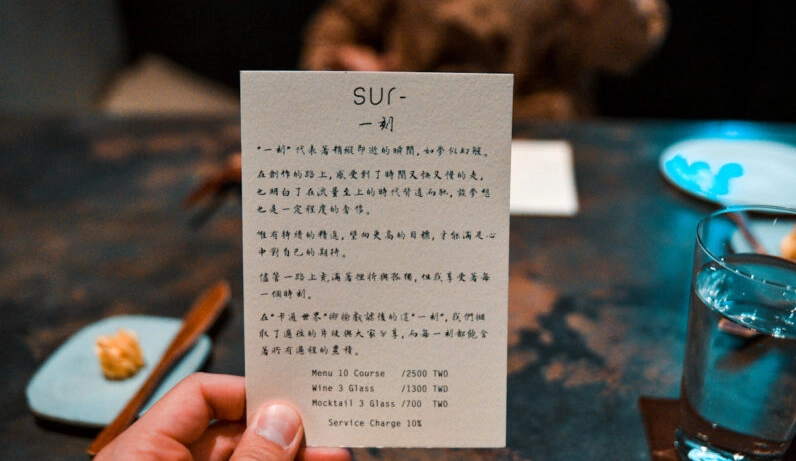 sur-
一刻
"一刻" 代表著稍縱即逝的瞬間, 如夢似幻般。
在創作的路上, 感受到了時間又快又慢的走,
也明白了在流量至上的時代背道而馳, 談夢想
也是一定程度的奢侈。
惟有持續的精進, 望向更高的目標, 才能滿足心
中對自己的期待。
儘管一路上充滿著挫折與孤獨, 但我享受著每
一個時刻。
在"卡通世界"揶揄戲謔後的這"一刻", 我們擷
取了過往的片段與大家分享, 而每一刻都飽含
著所有過程的累積。
Menu 10 Course /2500 TWD
Wine 3 Glass /1300 TWD
Mocktail 3 Glass /700 TWD
Service Charge 10%